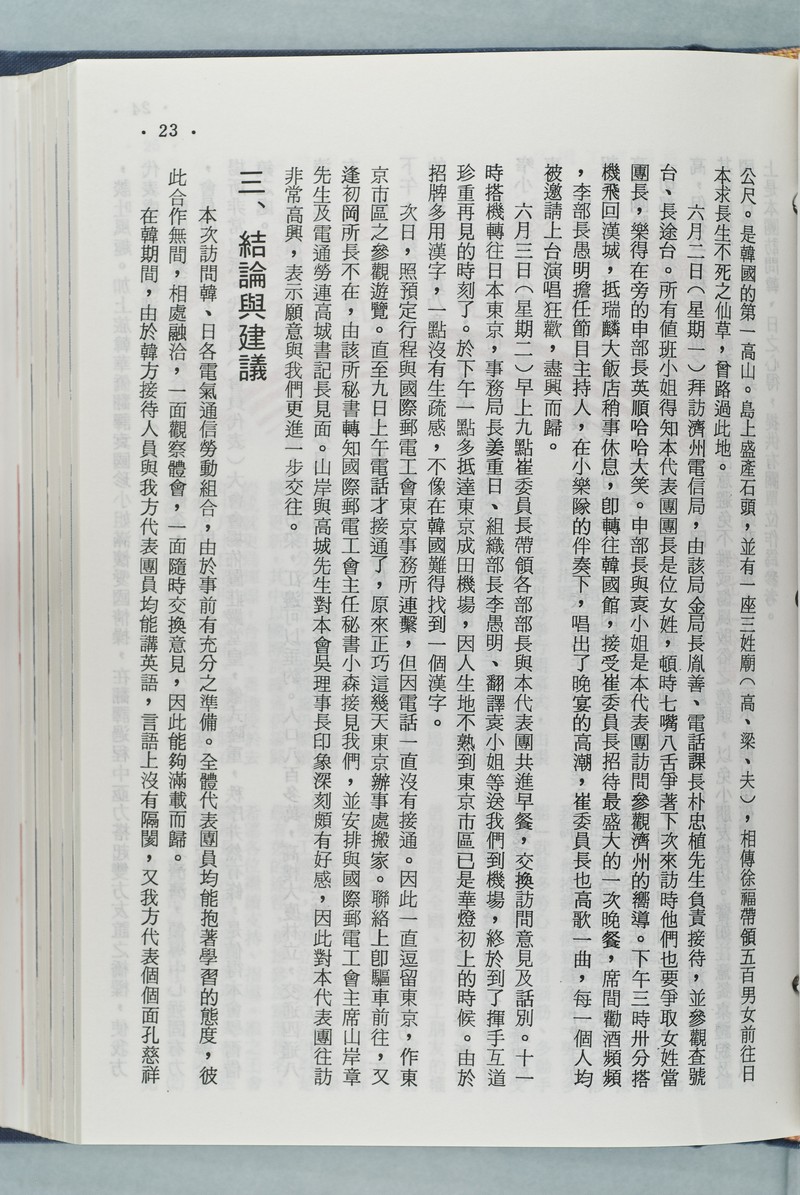 公尺。是韓國的第一高山。島上盛產石頭，並有一座三姓廟（高、梁、夫），相傳徐福帶領五百男女前往日
本求長生不死之仙草，曾路過此地。
六月二日（星期一）拜訪濟州電信局，由該局金局長胤善、電話課長朴忠植先生負責接待，並參觀查號
台、長途台。所有值班小姐得知本代表團團長是位女姓，頓時七嘴八舌爭著下次來訪時他們也要爭取女姓當
團長，樂得在旁的申部長英順哈哈大笑。申部長與袁小姐是本代表團訪問參觀濟州的嚮導。下午三時卅分搭
機飛回漢城，抵瑞麟大飯店稍事休息，卽轉往韓國館，接受崔委員長招待最盛大的一次晚餐，席間勸酒頻頻
，李部長愚明擔任節目主持人，在小樂隊的伴奏下，唱出了晚宴的高潮，崔委員長也高歌一曲，每一個人均
被邀請上台演唱狂歡，盡興而歸。
六月三日（星期二）早上九點崔委員長帶領各部部長與本代表團共進早餐，交換訪問意見及話別。十一
時搭機轉往日本東京，事務局長姜重日、組織部長李愚明、翻譯袁小姐等送我們到機場，終於到了揮手互道
珍重再見的時刻了。於下午一點多抵達東京成田機場，因人生地不熟到東京市區已是華燈初上的時候。由於
招牌多用漢字，一點沒有生疏感，不像在韓國難得找到一個漢字。
次日，照預定行程與國際郵電工會東京事務所連繫，但因電話一直沒有接通。因此一直逗留東京，作東
京市區之參觀遊覽。直至九日上午電話才接通了，原來正巧這幾天東京辦事處搬家。聯絡上卽驅車前往，又
逢初岡所長不在，由該所秘書轉知國際郵電工會主任秘書小森接見我們，並安排與國際郵電工會主席山岸章
先生及電通勞連高城書記長見面。山岸與高城先生對本會吳理事長印象深刻頗有好感，因此對本代表團往訪
非常高興，表示願意與我們更進一步交往。
三、結論與建議
本次訪問韓、日各電氣通信勞動組合，由於事前有充分之準備。全體代表團員均能抱著學習的態度，彼
此合作無間，相處融洽，一面觀察體會，一面隨時交換意見，因此能夠滿載而歸。
在韓期間，由於韓方接待人員與我方代表團員均能講英語，言語上沒有隔閡，又我方代表個個面孔慈祥
· 23 ·